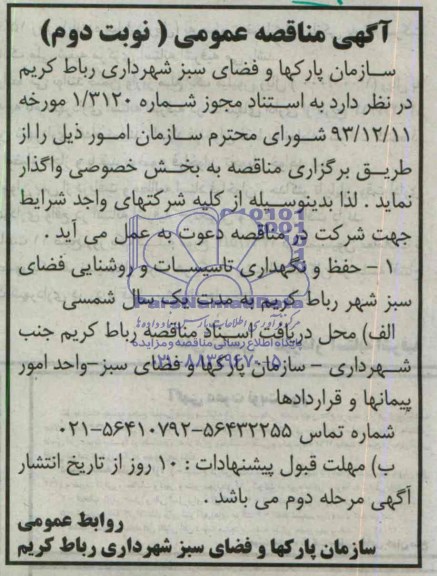 آگهی مناقصه عمومی ( نوبت دوم)
سازمان پارکها و فضای سبز شهرداری رباط کریم
در نظر دارد به استناد مجوز شماره ۱/۳۱۲۰ مورخه
۹۳/۱۲/۱۱ شورای محترم سازمان امور ذیل را از
طریق برگزاری مناقصه به بخش خصوصی واگذار
نماید . لذا بدینوسیله از کلیه شرکتهای واجد شرایط
جهت شرکت در مناقصه دعوت به عمل می آید .
۱ – حفظ و نگهداری تاسیسات و روشنایی فضای
سبز شهر رباط کریم به مدت یک سال شمسی
الف) محل دریافت اسناد مناقصه رباط کریم جنب
پایگاه اطلاع رسانی مناقصه و مزایده
شهرداری – سازمان پارکها و فضای سبز–واحد امور
پیمانها و قراردادها
شماره تماس ۵۶۴۳۲۲۵۵–۵۶۴۱۰۷۹۲-۰۲۱
ب) مهلت قبول پیشنهادات : ۱۰ روز از تاریخ انتشار
آگهی مرحله دوم می باشد .
روابط عمومی
سازمان پارکها و فضای سبز شهرداری رباط کریم